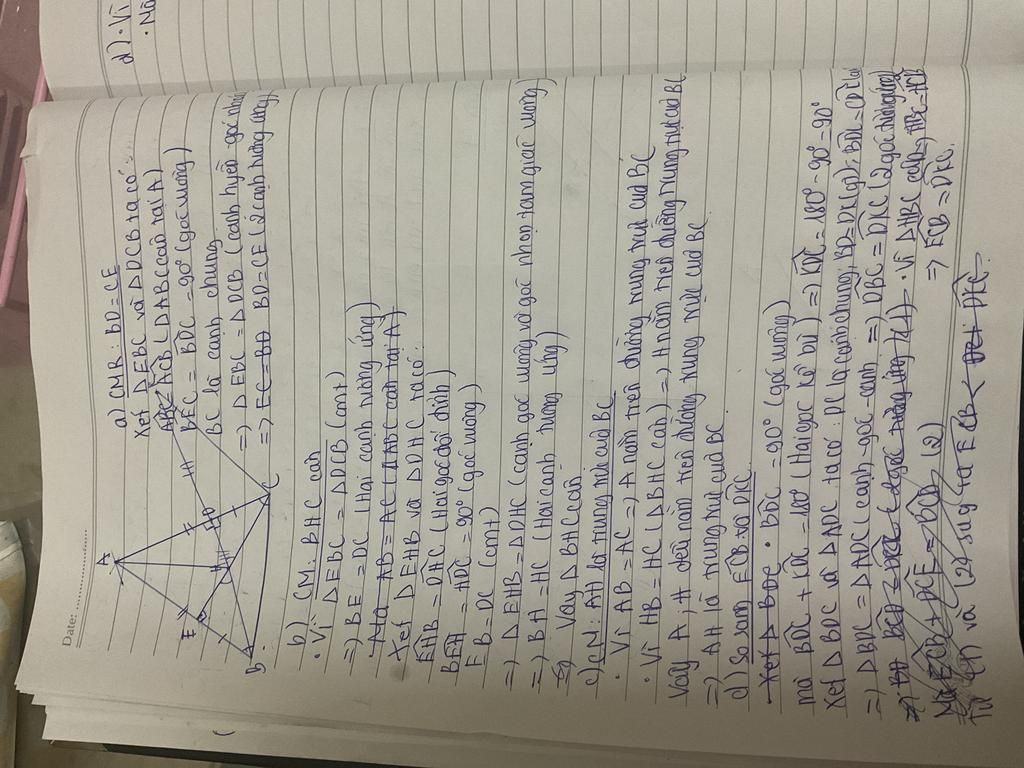 Date:
A
E
D
H
B
C
a) CMR: BD = CE
Xét ΔEBC và ΔDCB ta có:
ABC = ACB (ΔABC cân tại A)
BEC = BDC = 90° (góc vuông)
BC là cạnh chung
=) ΔEBC = ΔDCB (cạnh huyền góc nhọn
=) EC = BD BD = CE (2 cạnh tương ứng)
b) CM: BHC cân
• Vì ΔEBC = ΔDCB (cmt)
=) BE = DC (Hai cạnh tương ứng)
AB = AC (ΔABC cân tại A)
Xét ΔEHB và ΔDHC ta có:
EHB = DHC (Hai góc đối đỉnh)
BEH = HDC = 90° (góc vuông)
EB = DC (cmt)
=) ΔEHB = ΔDHC (cạnh góc vuông và góc nhọn tam giác vuông)
=) BH = HC (Hai cạnh tương ứng)
Vậy ΔBHC cân
c) CM: AH là trung trực của BC
• Vì AB = AC =) A nằm trên đường trung trực của BC
• Vì HB = HC (ΔBHC cân) =) H nằm trên đường trung trực của BC
Vậy A, H đều nằm trên đường trung trực của BC
=) AH là trung trực của BC
d) So sánh ECB và DKC
Xét Δ BDC • BDC = 90° (góc vuông)
mà BDC + KDC = 180° (Hai góc kề bù) =) KDC = 180° - 90° = 90°
Xét ΔBDC và ΔKDC ta có: DC là cạnh chung; BD = DK (gt);
=) ΔBDC = ΔKDC (cạnh-góc-cạnh) =) DBC = DKC (2 góc tương ứng)
(1) • Vì ΔABC cân, ABC = ACB
ECB + DCE = BCD (2) => ECB = DKC.
Từ (1) và (2) suy ra ECB
d) • Vì